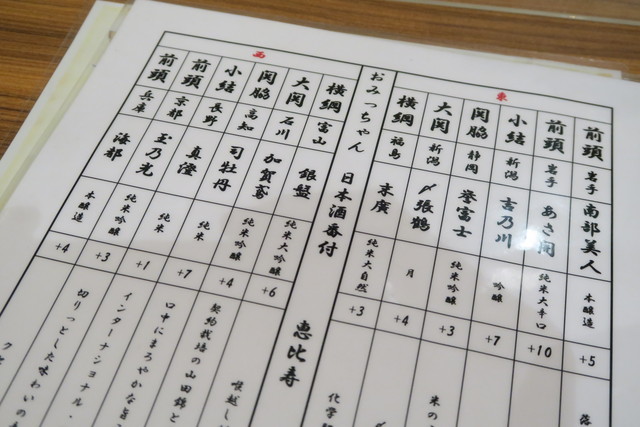 東
前頭 岩手 南部美人 本醸造 +5 落
前頭 岩手 あさ開 純米大辛口 +10
小結 新潟 吉乃川 吟醸 +7
関脇 静岡 誉富士 純米吟醸 +3 米の
大関 新潟 〆張鶴 月 +4
横綱 福島 末廣 純米大自然 +3 化学
おみっちゃん 日本酒番付 恵比寿
西
横綱 富山 銀盤 純米大吟醸 +6 喉越し
大関 石川 加賀鳶 純米吟醸 +4 契約栽培の山田錦と
関脇 高知 司牡丹 純米 +7 口中にまろやかな旨
小結 長野 真澄 純米 +1 インターナショナル・
前頭 京都 玉乃光 純米吟醸 +3 切りっとした味わいの
前頭 兵庫 本醸造 +4